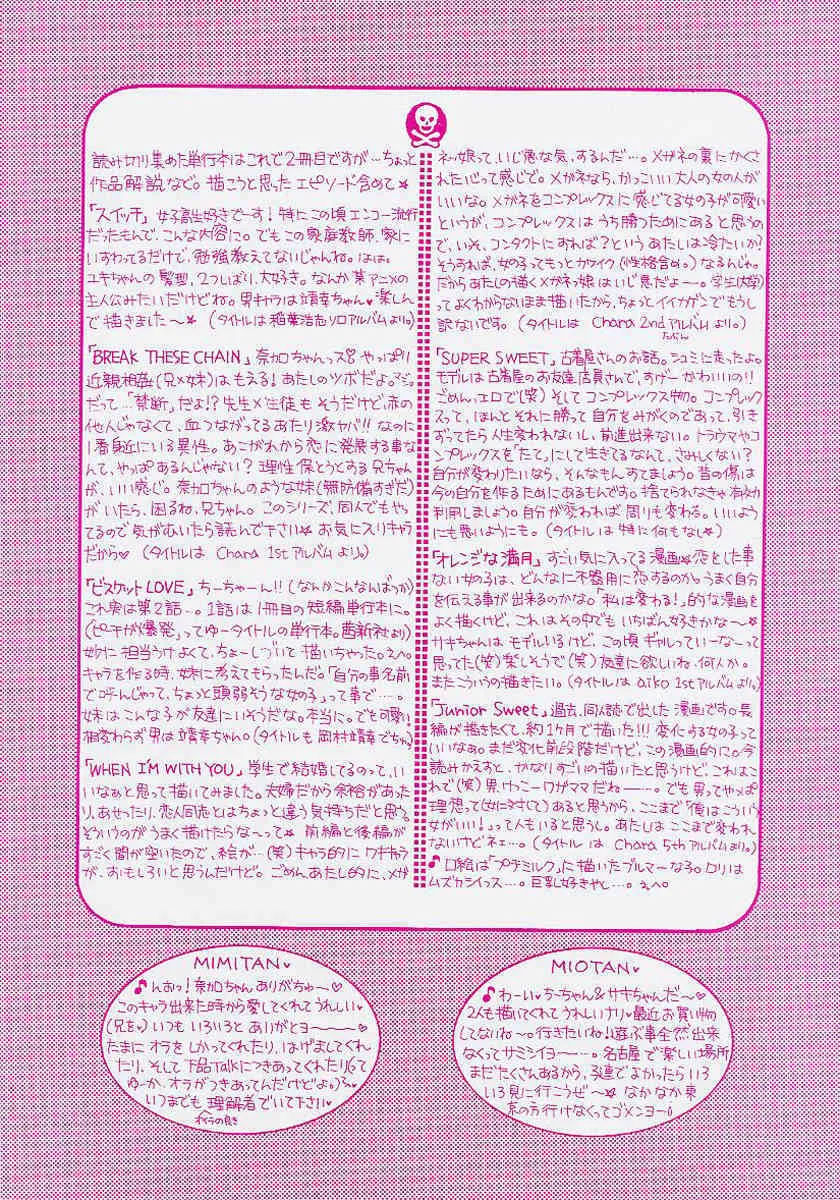 読み切り集めた単行本はこれで2冊目ですが…ちょっと
作品解説など。描こうと思った エピソード含めて★
「スイッチ」 女子高生好きでーす！特にこの頃エンコー流行
だったもんで、こんな内容に。でもこの家庭教師、家に
いすわってるだけで、勉強教えてないじゃんね。ははは。
ユキちゃんの髪型、2つしばり、大好き。なんか某アニメの
主人公みたいだけどね。男キャラは靖幸ちゃん♥楽しん
で描きました〜★ (タイトルは稲葉浩志ソロアルバムより。)
「BREAK THESE CHAIN」奈加ちゃんっス やっぱり
近親相姦(兄×妹)はもえる！あたしのツボだよ。マジ。
だって…「禁断」だよ!? 先生×生徒もそうだけど、赤の
他人じゃなくて、血つながってるあたり激ヤバ!! なのに
1番身近にいる異性。あこがれから恋に発展する事な
んて、やっぱあるんじゃない？理性保とうとする兄ちゃん
が、いい感じ。奈加ちゃんのような妹(無防備すぎだ)
がいたら、困るね、兄ちゃん。このシリーズ、同人でもや
てるので気がむいたら読んで下さい★ お気に入りキャラ
だから♥ (タイトルは Chara 1stアルバムより。)
「ビスケットLOVE」ちーちゃーん!! (なんかこんなんばっか)
これ実は第2話…。1話は1冊目の短編単行本に。
(「ピーチが爆発」ってゆータイトルの単行本。茜新社より)
妙に担当うけよくて、ちょーしづいて描いちゃった。えへ。
キャラを作る時、妹に考えてもらったんだ。「自分の事名前
で呼んじゃって、ちょっと頭弱そうな女の子」って事で…。
妹はこんな子が友達にいそうだな。本当に。でも可愛い
相変わらず男は靖幸ちゃん。(タイトルも岡村靖幸でちゅ)
「WHEN I'M WITH YOU」学生で結婚してるのって、い
いなあと思って描いてみました。夫婦だから余裕があった
り、あせったり、恋人同志とはちょっと違う気持ちだと思う。
そういうのがうまく描けたらな〜って★ 前編と後編が
すごく間が空いたので、絵が…(笑)キャラ的に ワキキャラ
が、おもしろいと思うんだけど。ごめん、あたし的に、メガ
ネっ娘って、いじ悪な気、するんだ…。メガネの裏にかくさ
れたいって感じで。メガネなら、かっこいい大人の女の人が
いいな。メガネをコンプレックスに感じてる女の子が可愛い
というが、コンプレックスはうち勝つためにあると思うの
で、いっそ、コンタクトにすれば？というあたしは冷たいか？
そうすれば、女の子ってもっとカワイク(性格含め。)なるんじゃ。
だからあたしの描くメガネっ娘はいじ悪だよー。学生(大学)
ってよくわからないまま描いたから、ちょっとイイカゲンでもうし
訳ないです。(タイトルは Chara 2ndアルバムより。)
たぶん
「SUPER SWEET」古着屋さんのお話。シュミに走ったよ。
モデルは古着屋のお友達店員さんで、すげーかわいいの!!
ごめん、エロで(笑)そしてコンプレックス物。コンプレック
スって、ほんとそれに勝って自分をみがくのであって、引き
ずってたら人生変われないし、前進出来ない。トラウマやコ
ンプレックスを「たて」にして生きてるなんて、さみしくない？
自分が変わりたいなら、そんなもんすてましょう。昔の傷は
今の自分を作るためにあるもんです。捨てられなきゃ有効
利用しましょう。自分が変われば周りも変わる。いいよう
にも悪いようにも。(タイトルは特に何もなし★)
「オレンジな満月」すごい気に入ってる漫画★恋をした事
ない女の子は、どんなに不器用に恋するのか。うまく自分
を伝える事が出来るのかな。「私は変わる！」的な漫画を
よく描くけど、これはその中でもいちばん好きかな〜★
サキちゃんは モデルいるけど、この頃ギャルっていーな〜って
思ってた(笑)楽しそうで(笑)友達に欲しいね、何人か。
またこういうの描きたい。(タイトルは aiko 1stアルバムより。)
「Junior Sweet」過去、同人誌で出した漫画です。長
編が描きたくて、約1ヶ月で描いた!!! 変化する女の子って
いいなあ。まだ変化前段階だけど、この漫画的に。今
読みかえすと、かなりすごいの描いたと思うけど、これはこ
れで(笑)男けっこーワガママだねー…。でも男ってやっぱ
理想って(女に対して)あると思うから、ここまで「俺はこういう
女がいい！」って人もいると思うし。あたしはここまで変われ
ないけどネェ…。(タイトルは Chara 5thアルバムより。)
♪口絵は「プチミルク」に描いたブルマーなコ。ロリは
ムズカシイっス…。巨乳好きやし…。えへ。
MIMITAN♥
♪んおっ！奈加ちゃんありがちゅ〜♡
このキャラ出来た時から愛してくれてうれしい♥
(兄も♥)いつもいろいろとありがとヨ〜〜♡
たまにオラをしかってくれたり、はげましてくれ
たり、そして下品Talkにつきあってくれたり(って
ゆーか、オラがつきあってんだけどよ。)
いつまでも理解者でいて下さい♥
オイラの良き
MIOTAN♥
♪わーい♥ちーちゃん&サキちゃんだ〜♡
2人も描いてくれてうれしいナリ♥最近お買い物
してないね〜。行きたいね！遊ぶ事全然出来
なくってサミシイヨ〜…。名古屋で楽しい場所
まだたくさんあるから、3連でよかったらいろ
いろ見に行こうぜ〜☆ なかなか東
京の方行けなくってゴメンヨー